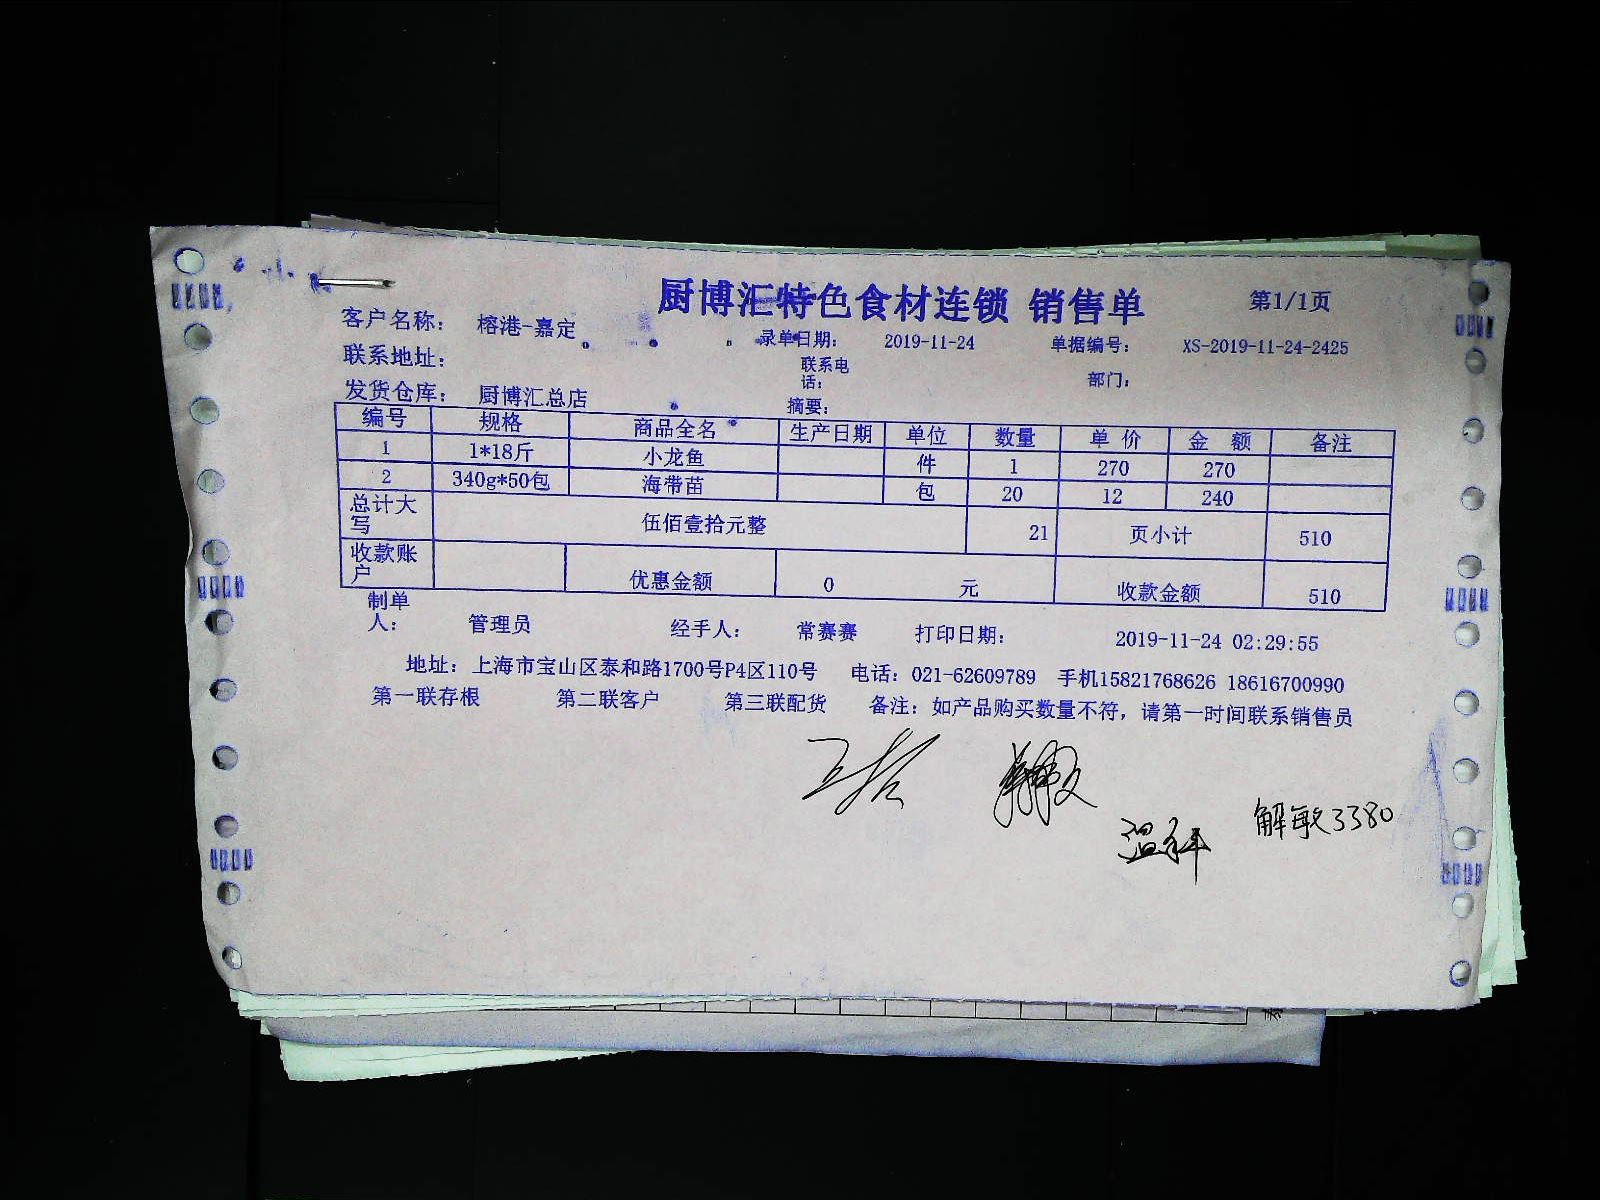 厨博汇特色食材连锁 销售单 第1/1页
客户名称： 榕港-嘉定 录单日期： 2019-11-24 单据编号： XS-2019-11-24-2425
联系地址： 联系电话： 部门：
发货仓库： 厨博汇总店 摘要：
编号 规格 商品全名 生产日期 单位 数量 单 价 金 额 备注
1 1*18斤 小龙鱼 件 1 270 270
2 340g*50包 海带苗 包 20 12 240
总计大写 伍佰壹拾元整 21 页小计 510
收款账户 优惠金额 0 元 收款金额 510
制单人： 管理员 经手人： 常赛赛 打印日期： 2019-11-24 02:29:55
地址：上海市宝山区泰和路1700号P4区110号 电话：021-62609789 手机15821768626 18616700990
第一联存根 第二联客户 第三联配货 备注：如产品购买数量不符，请第一时间联系销售员
解敏3380